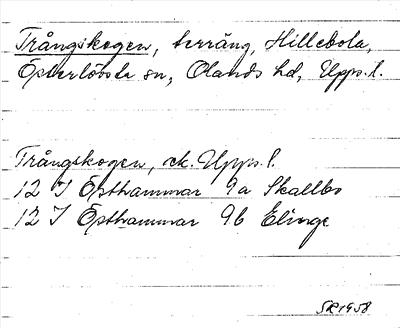 Trångskogen, terräng, Hillebola,
Österlövsta sn, Olands hd, Upps. l.
Trångskogen, ek. Upps. l.
12 I Östhammar 9a Skallbo
12 I Östhammar 9b Elinge
SR 1958